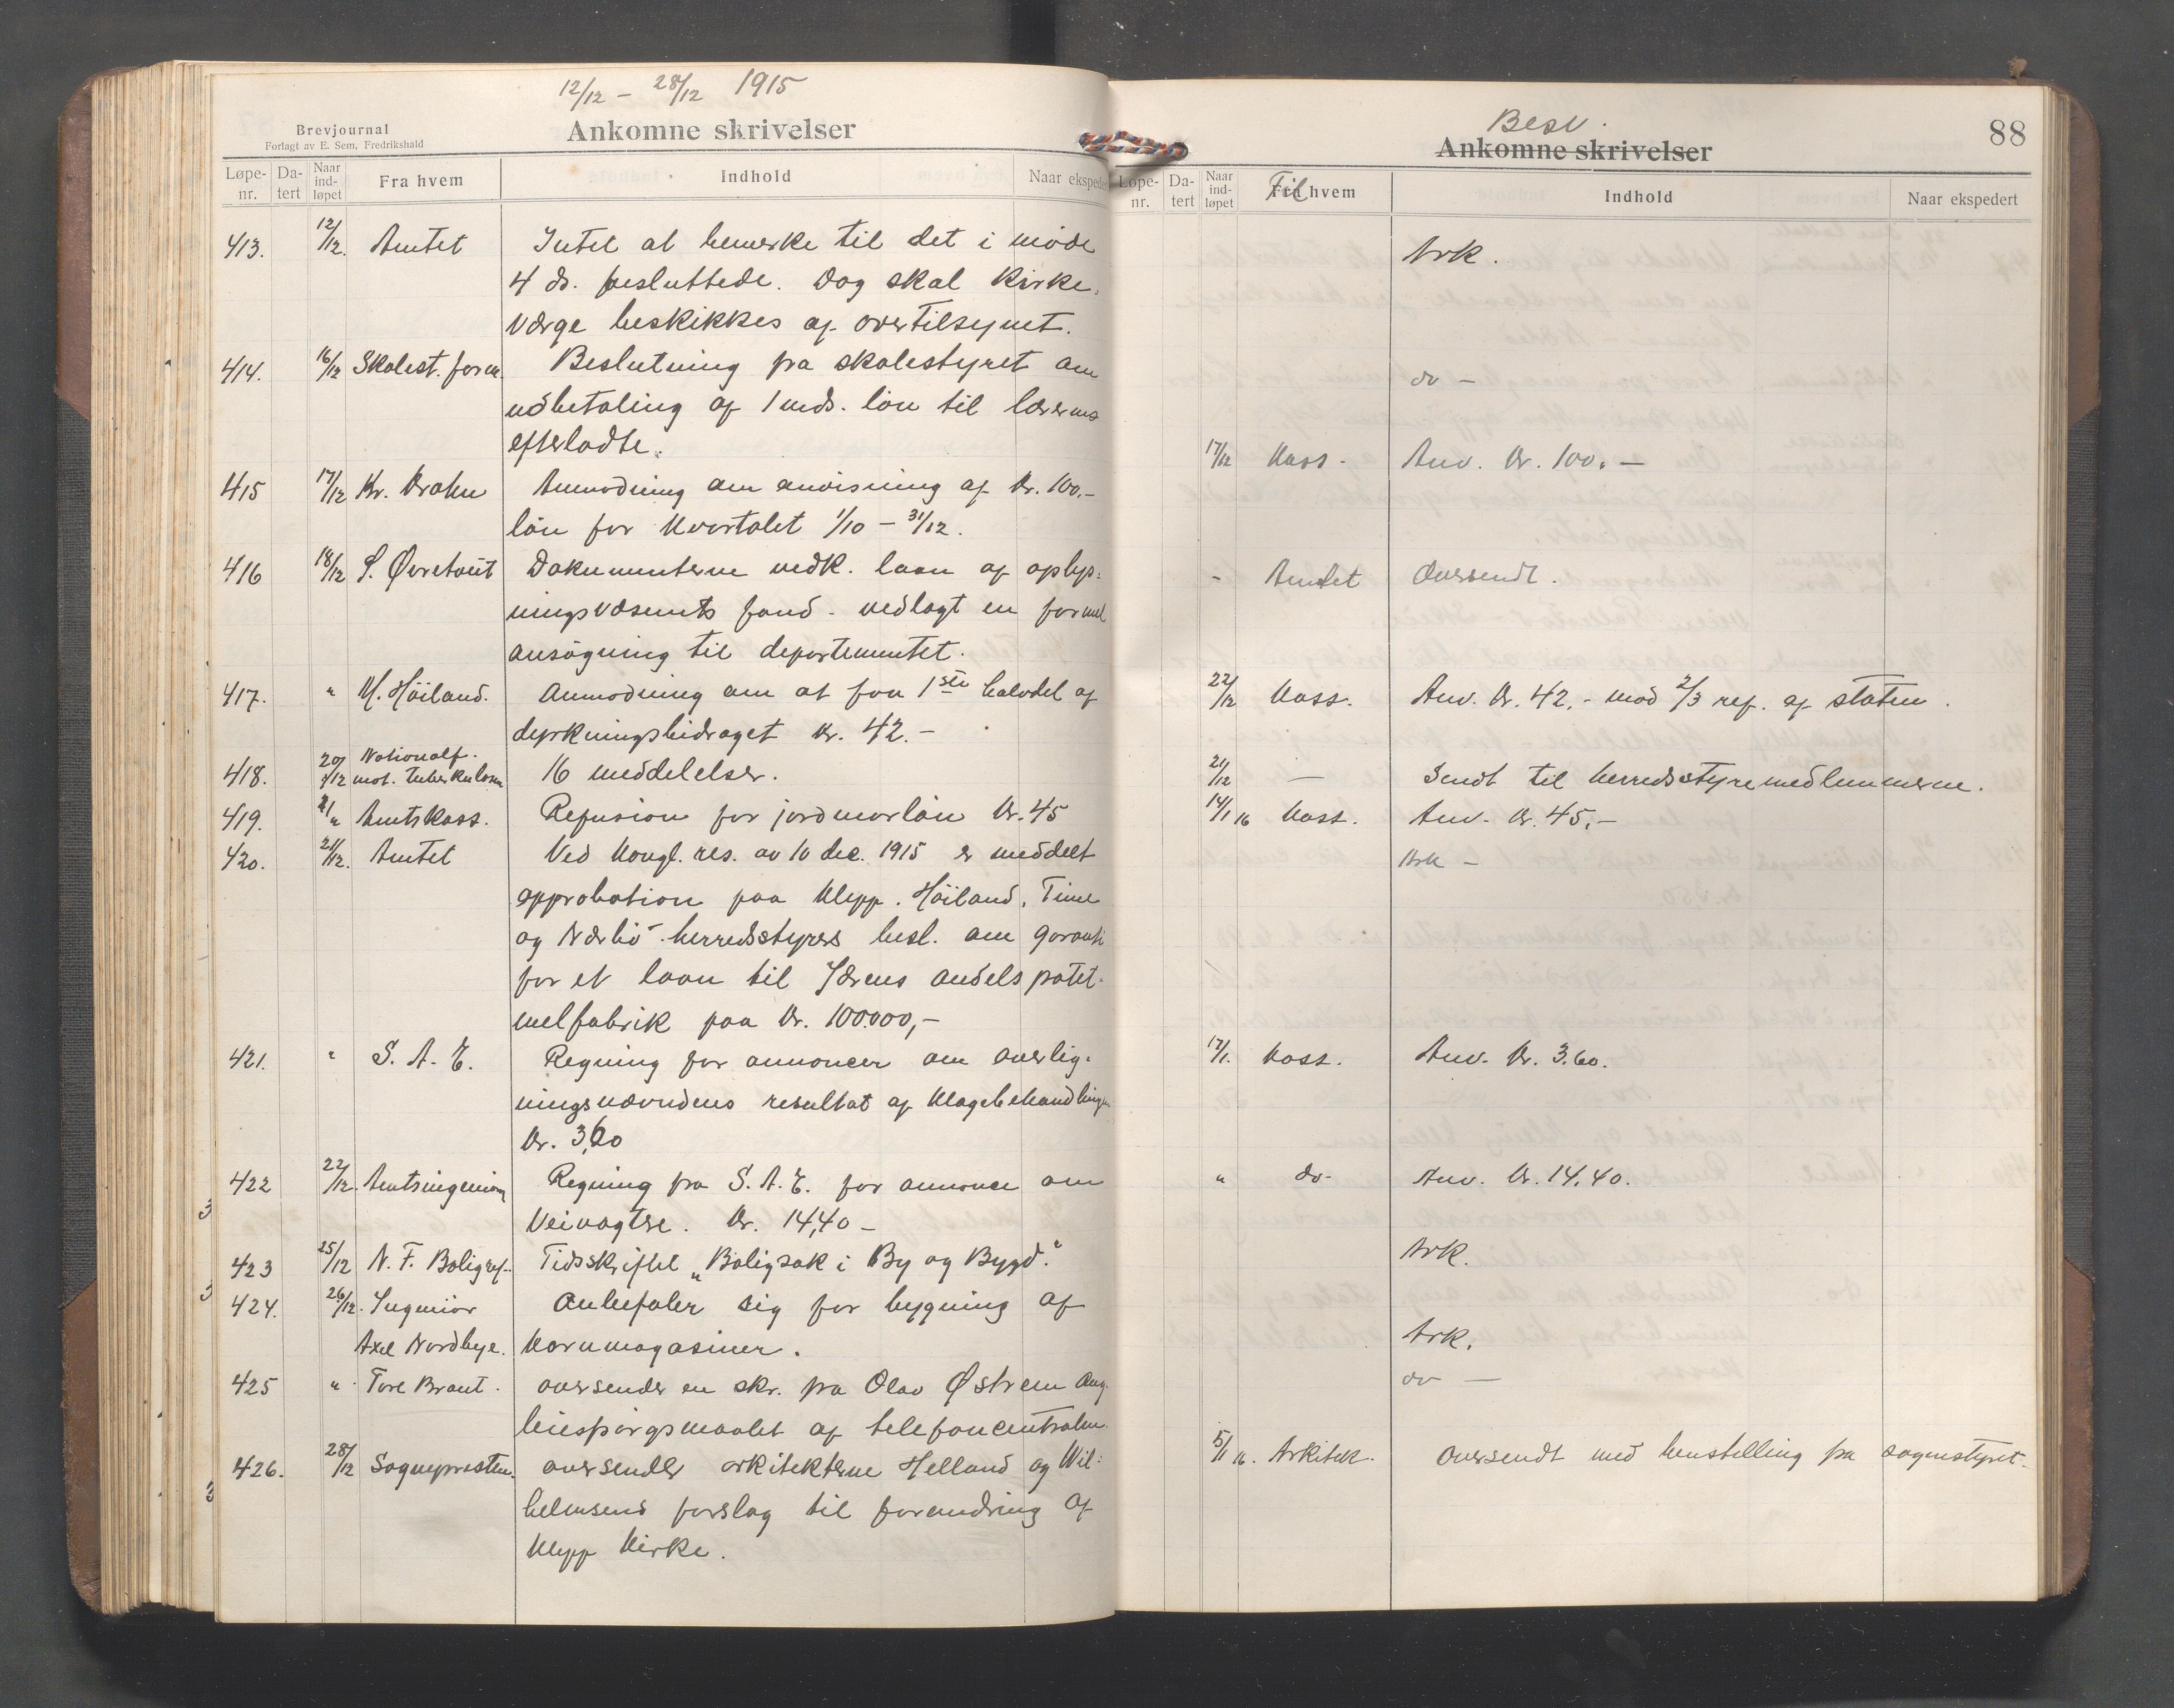 12/12 - 28/12 1915
Brevjournal
Forlagt av E. Sem, Fredrikshald
Ankomne skrivelser
Løpe-nr. Da-tert Naar ind-løpet Fra hvem Indhold Naar eksped
413. 12/12. Amtet Intet at bemerke til det i møde
4 ds. besluttede. Dog skal kirke-
værge beskikkes af overtilsynet.
414. 16/12 Skolest. form. Beslutning fra skolestyret om
udbetaling af 1 mds. løn til lærerens
efterladte.
415 17/12 Kr. Krohn Anmodning om anvisning af Kr. 100.-
løn for kvartalet 1/10 - 31/12.
416 18/12 S. Øvretveit Dokumenterne vedk. laan af oplys:
ningsvæsenets fond - vedlagt en formel
ansøgning til departementet.
417. " M. Høiland. Anmodning om at faa 1ste halvdel af
dyrkningsbidraget Kr. 42.-
418. 20/12 Nationalf. mot. tuberkulosen 16 meddelelser.
419. 21/" Amtskass. Refusion for jordmorløn Kr. 45
420. 21/12. Amtet Ved kongl. res. av 10 dec. 1915 er meddelt
approbation paa Klepp. Høiland, Time
og Nærbø herredsstyrers besl. om garanti
for et laan til Jærens andels potet-
melfabrik paa Kr. 100.000,-
421. " S. A. E. Regning for annoncer om overlig-
ningsnævndens resultat af klagebehandlingen
Kr. 3,60
422 22/12. Amtsingeniøren Regning fra S. A. E. for annonce om
Veivogtere. Kr. 14,40 -
423 25/12 N. F. Boligref. Tidsskriftet „Boligsak i By og Bygd."
424. 26/12. Ingeniør Anbefaler sig for bygning af
Axel Nordbye. Kornmagasiner.
425 " Tore Braut. oversender en skr. fra Olav Østrem ang.
leiespørgsmaalet af telefoncentralen.
426. 28/12 Sognepresten. oversender arkitekterne Helland og Wil:
helmsens forslag til forandring af
Klepp Kirke.
Besv.
Ankomne skrivelser
88
Løpe-nr. Da-tert Naar ind-løpet Fra hvem Til Indhold Naar ekspedert
Ark.
do -
17/12 Kass. Anv. Kr. 100.-
- Amtet Oversendt.
22/12 Kass. Anv. Kr. 42.- mod 2/3 ref. af staten.
21/12 - Sendt til herredsstyremedlemmerne.
14/1 16 Kass. Anv. Kr. 45.-
Ark -
17/1. Kass. Anv. Kr. 3.60.
" do- Anv. Kr. 14.40.
Ark.
Ark.
do -
5/1 16. Arkitek. Oversendt med henstilling fra sognestyret.